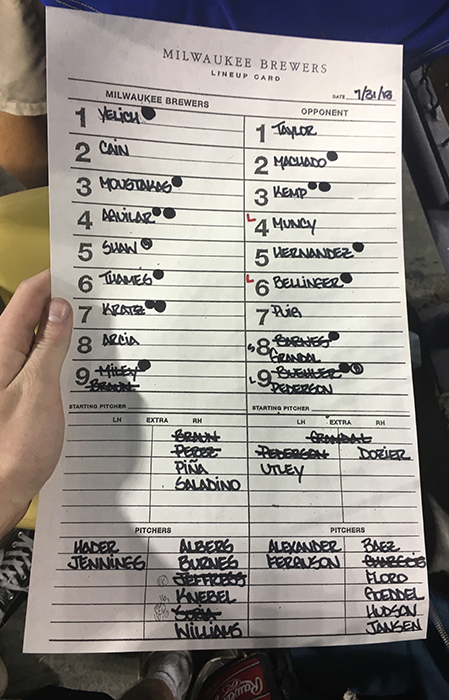 MILWAUKEE BREWERS
LINEUP CARD
DATE 7/31/18
MILWAUKEE BREWERS
1 YELICH
2 CAIN
3 MOUSTAKAS
4 AGUILAR
5 SHAW
6 THAMES
7 KRATZ
8 ARCIA
9 MILEY
BRAUN
OPPONENT
1 TAYLOR
2 MACHADO
3 KEMP
L 4 MUNCY
5 HERNANDEZ
L 6 BELLINGER
7 PUIG
S 8 BARNES
GRANDAL
L 9 BUEHLER
PEDERSON
STARTING PITCHER
LH EXTRA RH
BRAUN
PEREZ
PIÑA
SALADINO
STARTING PITCHER
LH EXTRA RH
GRANDAL
PEDERSON DOZIER
UTLEY
PITCHERS
HADER ALBERS
JENNINGS BURNES
JEFFRESS
KNEBEL
SORIA
WILLIAMS
PITCHERS
ALEXANDER BAEZ
FERGUSON CHARGOIS
FLORO
GOEDDEL
HUDSON
JANSEN
Rawlings